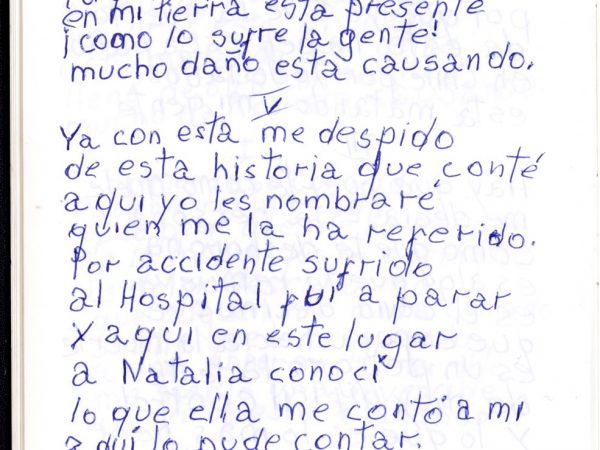 en mi tierra esta presente
¡como lo sufre la gente!
mucho daño esta causando.
V
Ya con esta me despido
de esta historia que conté
aqui yo les nombraré
quien me la ha referido.
Por accidente sufrido
al Hospital fui a parar
y aqui en este lugar
a Natalia conocí
lo que ella me contó a mi
aqui lo pude contar.